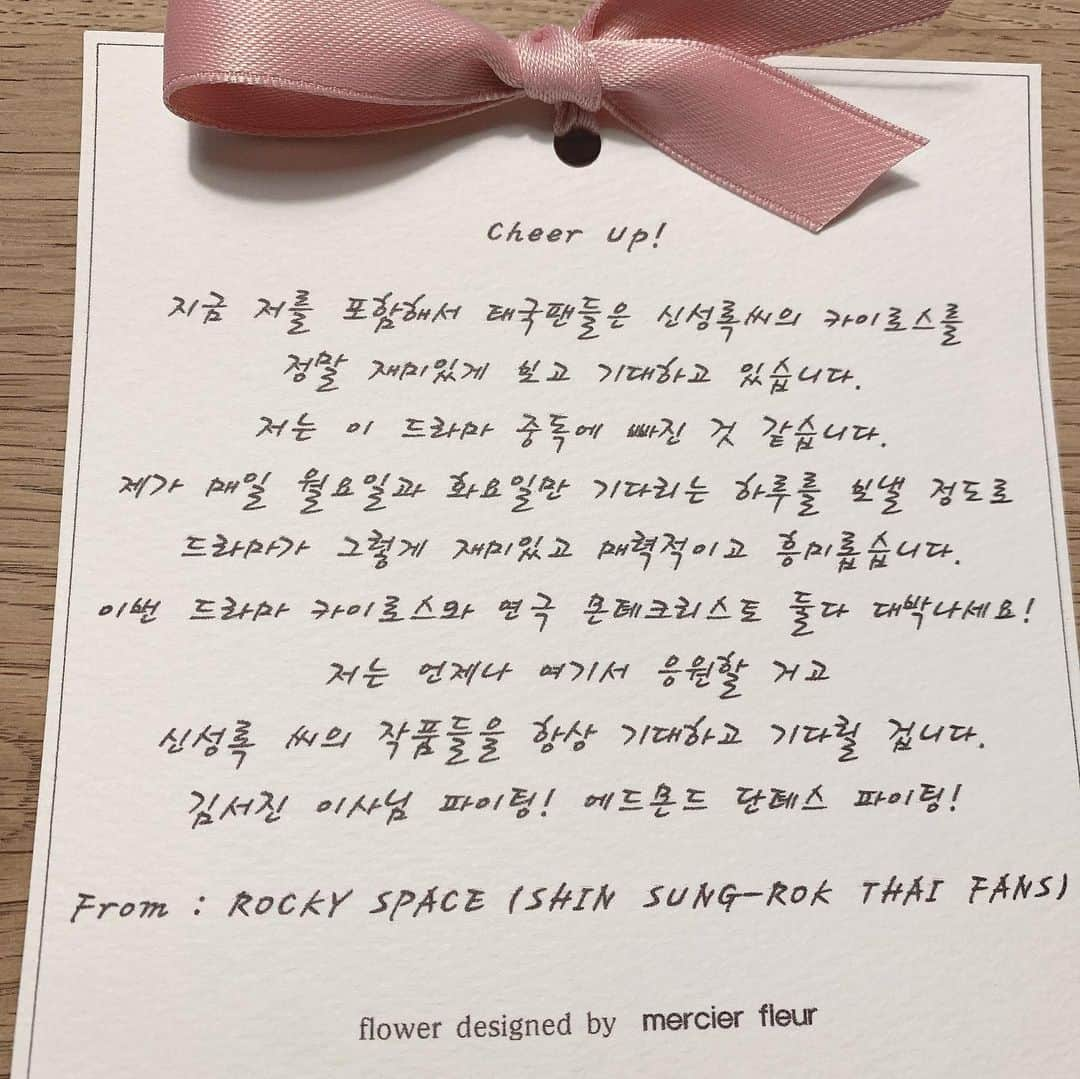 Cheer up!
지금 저를 포함해서 태국팬들은 신성록씨의 카이로스를
정말 재미있게 보고 기대하고 있습니다.
저는 이 드라마 중독에 빠진 것 같습니다.
제가 매일 월요일과 화요일만 기다리는 하루를 보낼 정도로
드라마가 그렇게 재미있고 매력적이고 흥미롭습니다.
이번 드라마 카이로스와 연극 몬테크리스토 둘다 대박나세요!
저는 언제나 여기서 응원할 거고
신성록 씨의 작품들을 항상 기대하고 기다릴 겁니다.
김서진 이사님 파이팅! 에드몬드 단테스 파이팅!
From : ROCKY SPACE (SHIN SUNG-ROK THAI FANS)
flower designed by mercier fleur